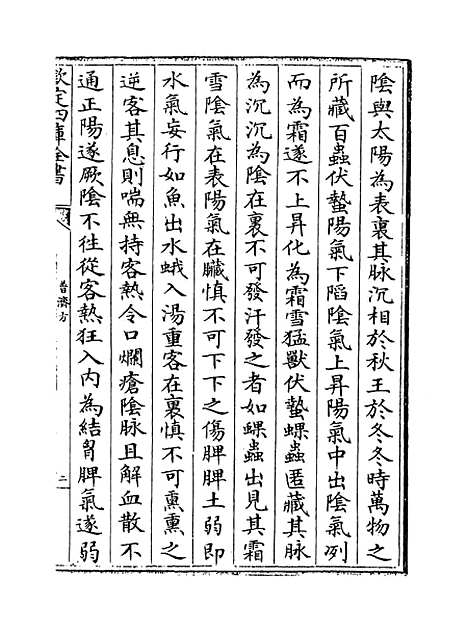 陰與太陽為表裏其脉沉相於秋王於冬冬時萬物之
所藏百蟲伏蟄陽氣下䧟陰氣上昇陽氣中出陰氣冽
而為霜遂不上昇化為霜雪猛獸伏蟄蜾蟲匿藏其脉
為沉沉為陰在裏不可發汗發之者如蜾蟲出見其霜
雪陰氣在表陽氣在臟慎不可下下之傷脾脾土弱即
水氣妄行如魚出水蛾入湯重客在裏慎不可熏熏之
逆客其息則喘無持客熱令口爛瘡陰脉且解血散不
通正陽遂厥陰不往從客熱狂入内為結胷脾氣遂弱
欽定四庫全書
普濟方
二